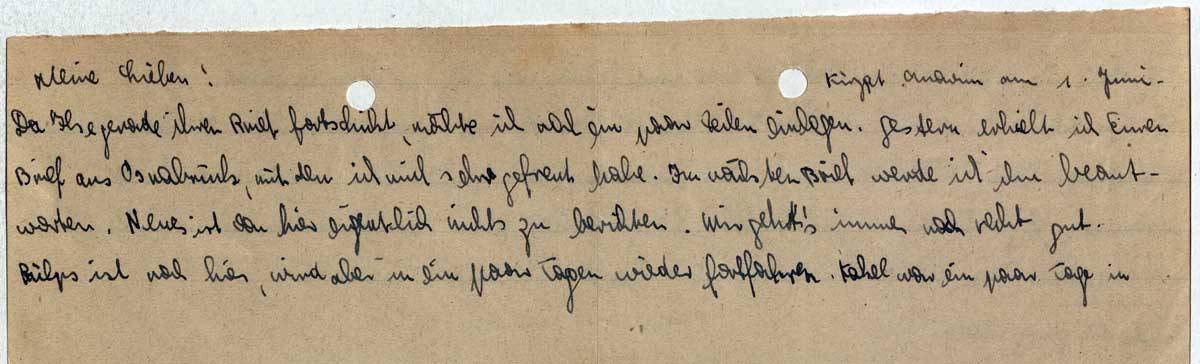 Meine Lieben! Kirjat Anavim am 1. Juni.
Da Ilse gerade ihren Brief fortschickt, möchte ich noch ein paar Zeilen einlegen. Gestern erhielt ich Euren
Brief aus Osnabrück, mit dem ich mich sehr gefreut habe. Im nächsten Brief werde ich ihn beant-
worten. Neues ist von hier eigentlich nichts zu berichten. Mir geht's immer noch recht gut.
ist noch hier, wird aber in ein paar Tagen wieder fortfahren. war ein paar Tage in